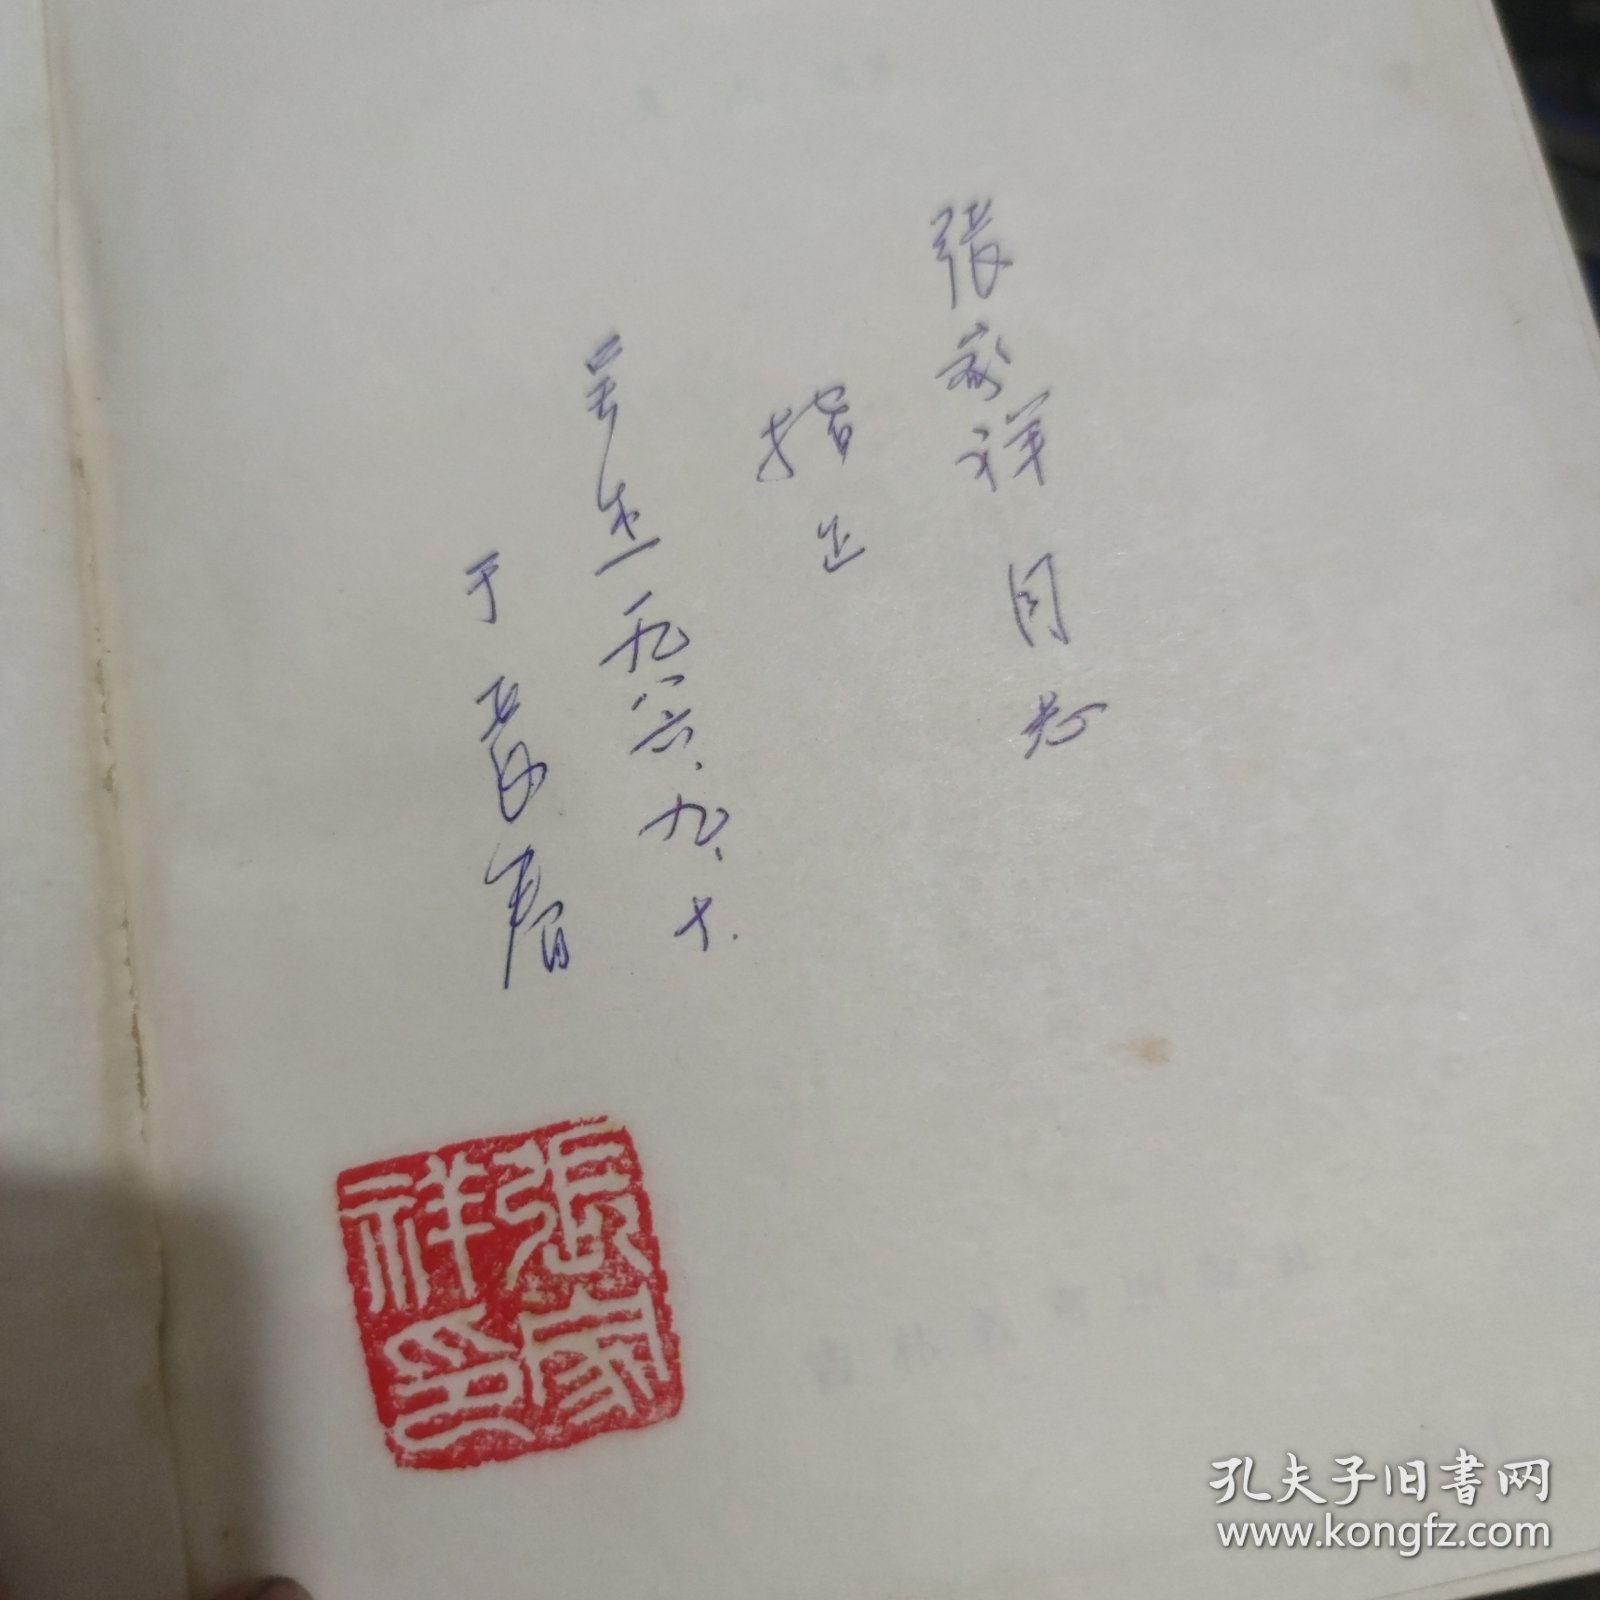 張家祥同志
指正
一九八六.九.十.
于長春
張家祥印
孔夫子旧書网
www.kongfz.com